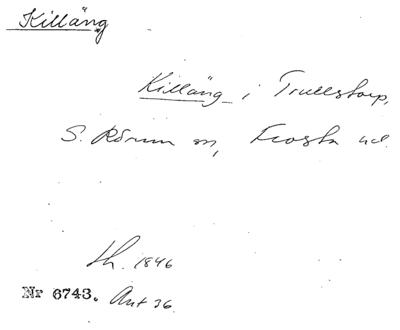 Killäng
Killäng i Trullstorp,
S. Rörum sn, Frosta hd.
lh. 1846
Nr 6743. Ant 36